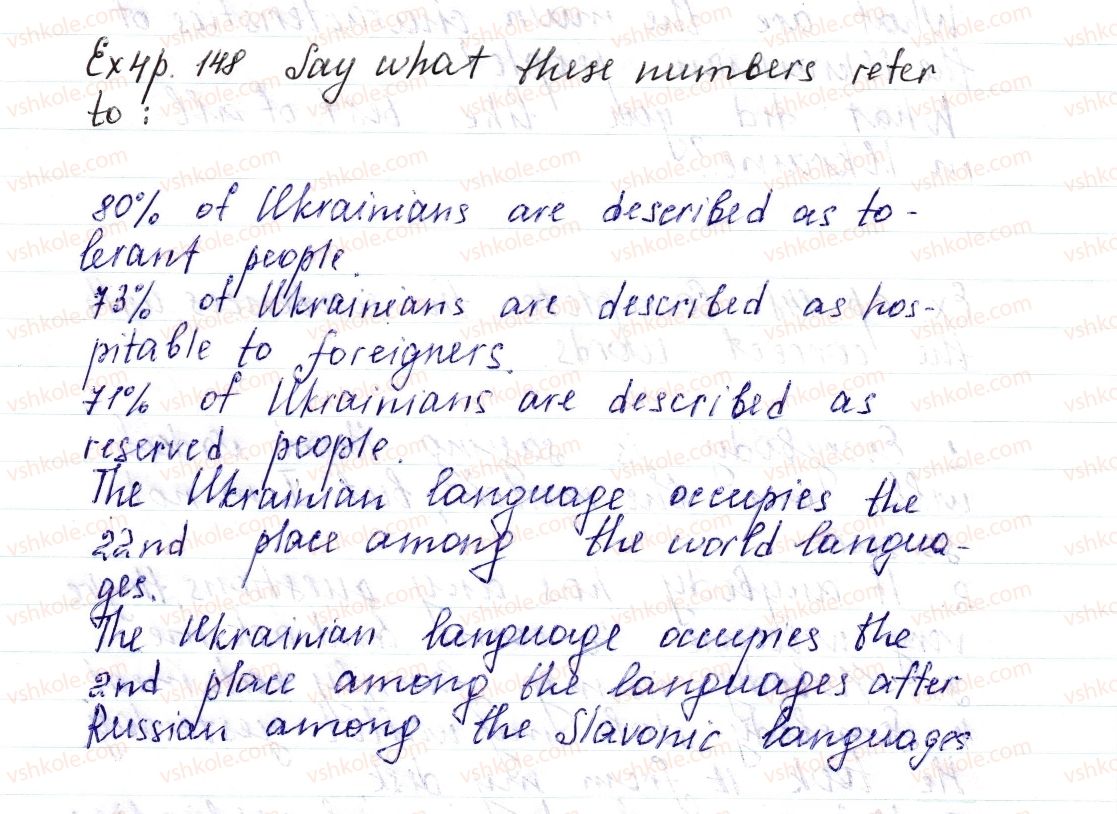 Ex 4 p. 148 Say what these numbers refer
to :
80% of Ukrainians are described as to-
lerant people.
73% of Ukrainians are described as hos-
pitable to foreigners.
71% of Ukrainians are described as
reserved people.
The Ukrainian language occupies the
22nd place among the world langua-
ges.
The Ukrainian language occupies the
2nd place among the languages after
Russian among the Slavonic languages
vshkole.com